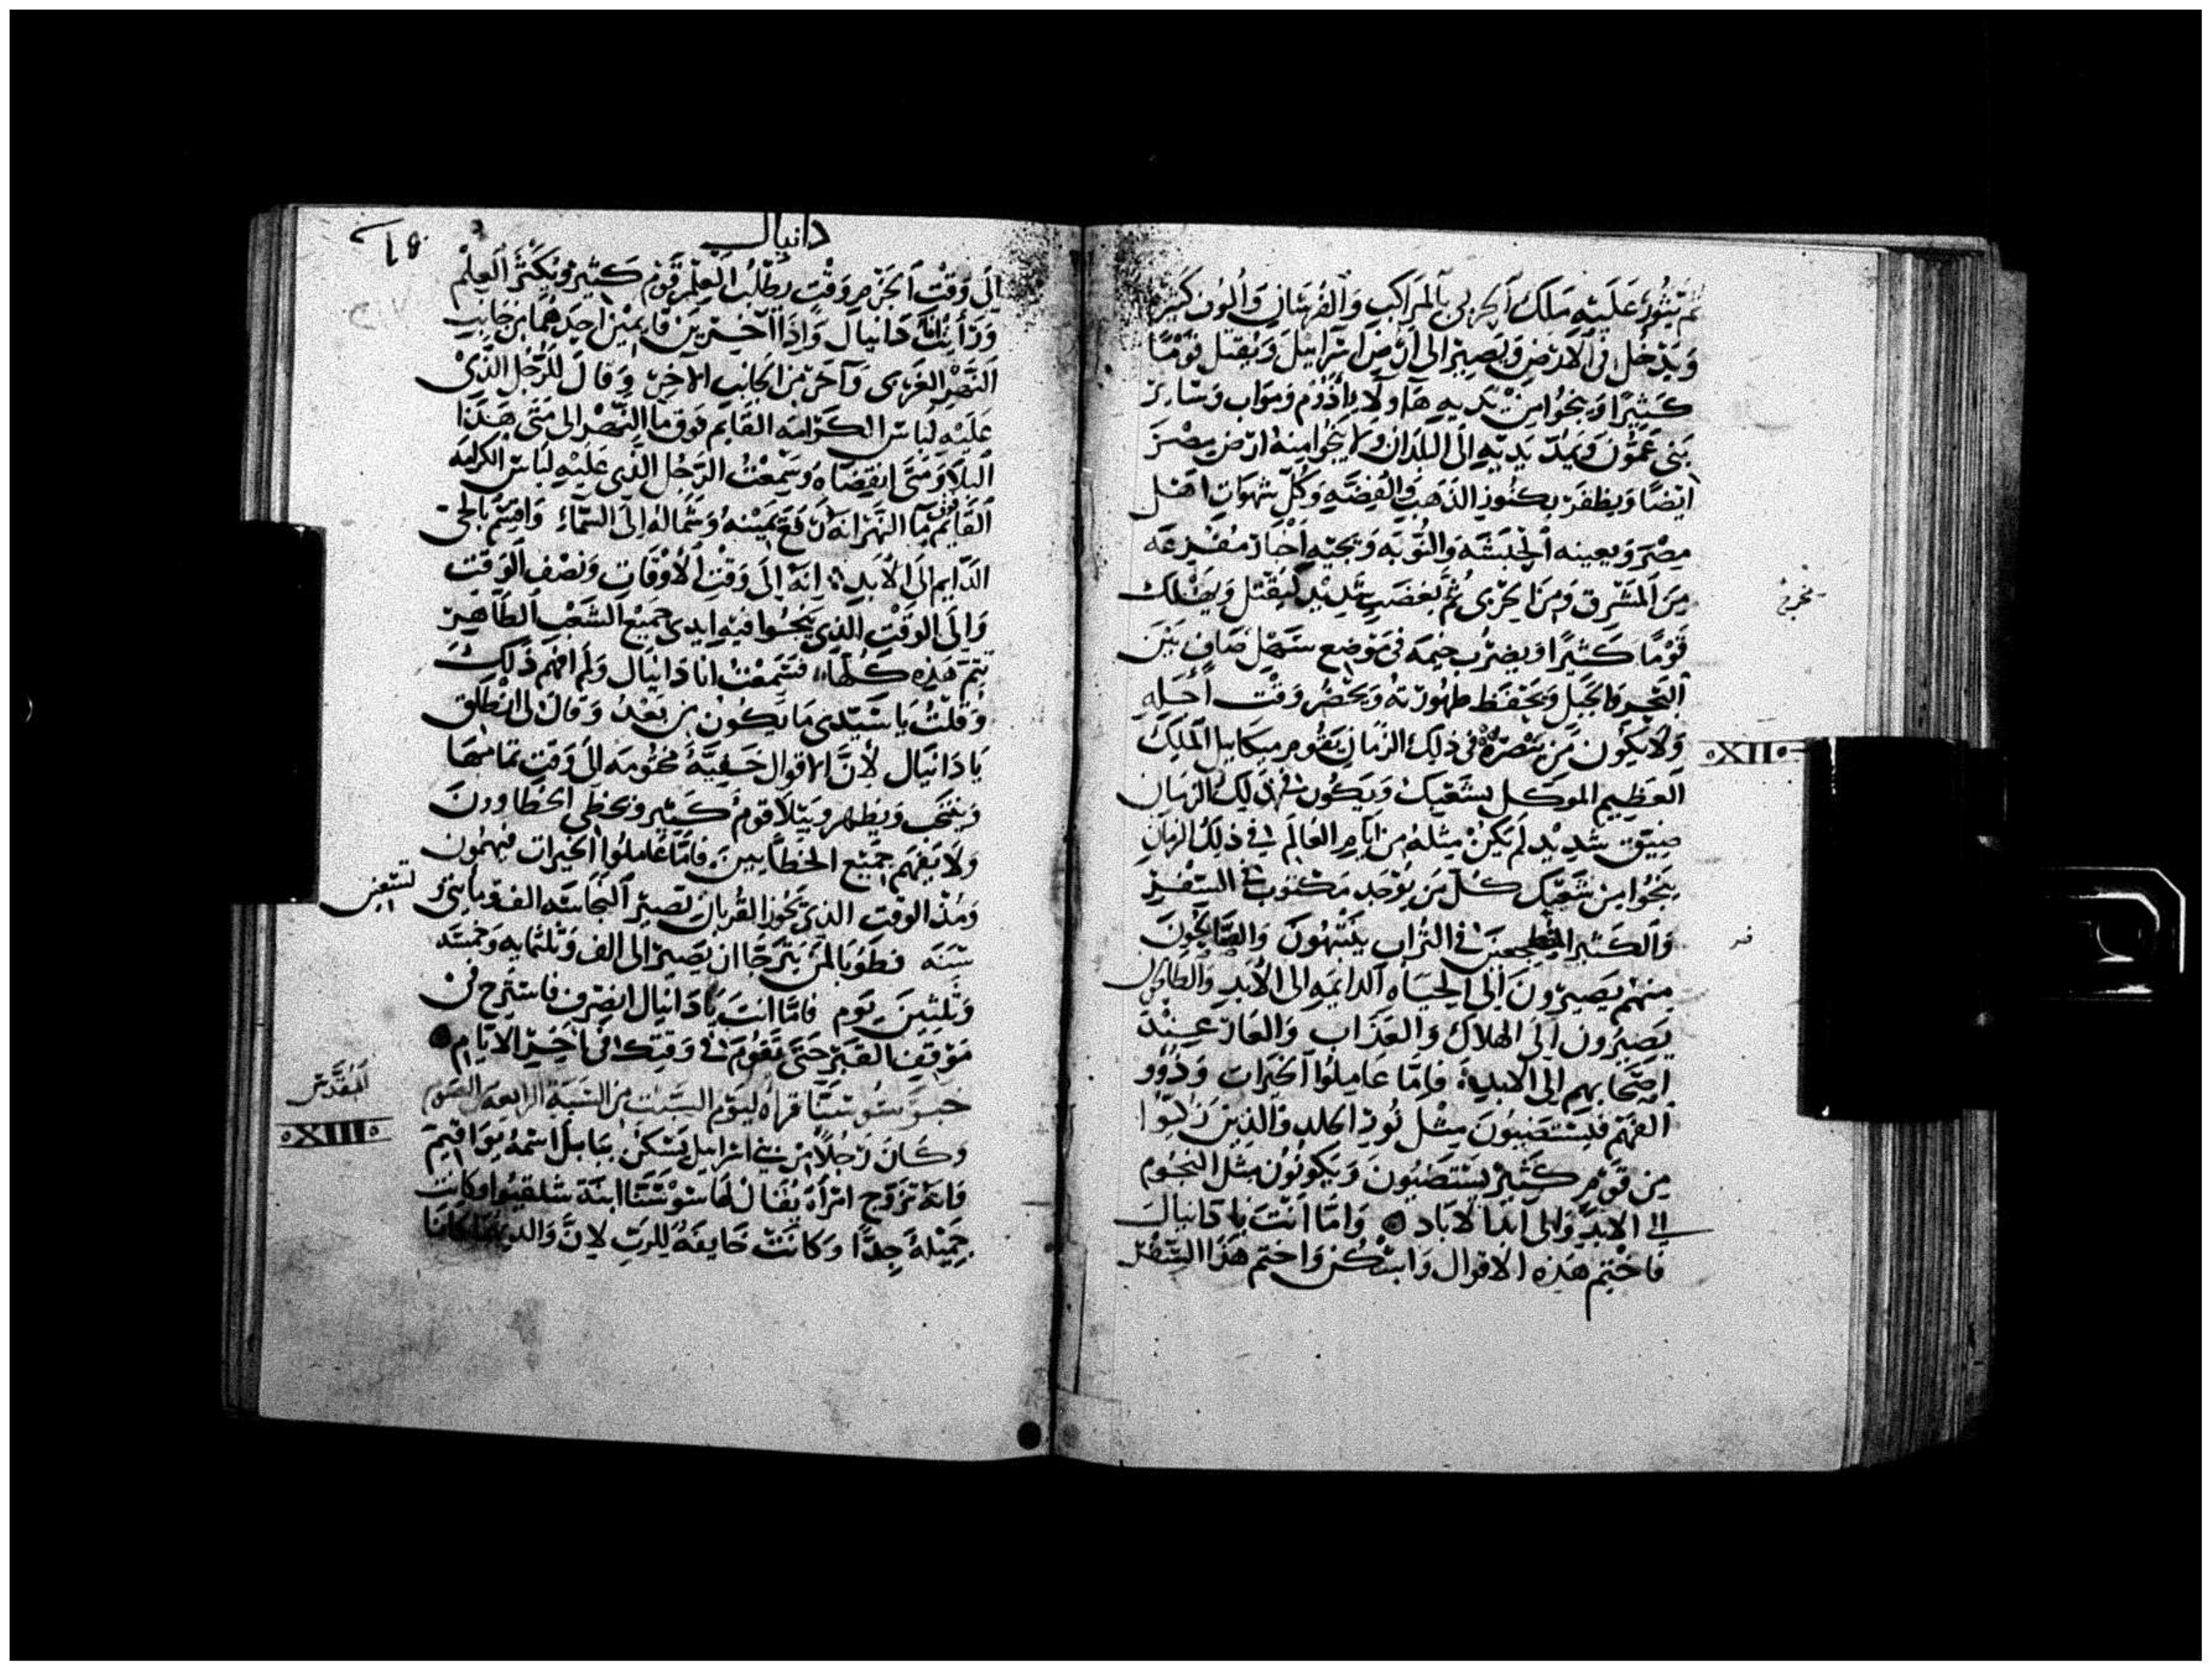 ثم يثور عليه ملك الجربي بالمراكب والفرسان والوف كثيرة
ويدخل في الارض ويصير الى ارض اسرائيل ويقتل قومًا
كثيرًا وينجوا من يديه هاولاء اذوم ومواب وساير
بني عمون ويمد يديه الى البلدان ولا ينجوا منه ارض مصر
ايضًا ويظفر بكنوز الذهب والفضه وكل شهوات اهل
مصر ويعينه الحبشه والنوبه وتجيه اخبار مفزعه
من المشرق ومن الجربي ثم بغضب شديد ليقتل ويهلك
قومًا كثيرًا ويضرب خيمه في موضع سهل صاف بين
البحر والجبل ويحتفظ طهورته ويحضر وقت اجله
ولا يكون من ينصره في ذلك الزمان يقوم ميكاييل الملك
·XII·
العظيم الموكل بشعبك ويكون في ذلك الزمان
ضيق شديد لم يكن مثله من ايام العالم في ذلك الزمان
ينجوا من شعبك كل من يوجد مكتوب في السفر
والكثير المضطجعين في التراب ينتبهون والصالحون
منهم يصيرون الى الحياه الدايمه الى الابد والطالحون
يصيرون الى الهلاك والعذاب والعار عند
اصحابهم الى الابد فاما عاملوا الخيرات وذوو
الفهم فيستضيون مثل نور الجلد والذين زكوا
من قوم كثير يستضيون ويكونون مثل النجوم
الى الابد والى ابد الاباد واما انت يا دانيال
فاختم هذه الاقوال واسكن واختم هذا السفر
دانيال
الى وقت الجزم وقت يطلب العلم قوم كثير ويكثر العلم
ورايت انا دانيال واذا اخرين قايمين احدهما من جانب
النهر الغربي وآخر من الجانب الاخر وقال للرجل الذي
عليه لباس الكرامه القايم فوق ما النهر الى متى هذا
البلا ومتى انقضاه وسمعت الرجل الذي عليه لباس الكرامه
القايم فوق ما النهر انه رفع يمينه وشماله الى السماء واقسم بالحي
الدايم الى الابد انه الى وقت الاوقات ونصف الوقت
والى الوقت الذي ينجوا فيه ايدي جميع الشعب الطاهر
يتم هذه كلها فسمعت انا دانيال ولم افهم ذلك
وقلت يا سيدي ما يكون من بعد وقال لي انطلق
يا دانيال لان الاقوال خفيه مختومه الى وقت تمامها
وينتخب ويظهر ويبتلا قوم كثير ويخطي الخطاوون
ولا يفهم جميع الخطايين فاما عاملوا الخيرات فيهمون
ومنذ الوقت الذي يجوز القربان تصير النجاسه الف ومايتي
سنه فطوبا لمن يترجا ان يصير الى الف وثلثمايه وخمسه
وثلثين يوم فاما انت يا دانيال انصرف فاستريح في
موقف القبر حتى تقوم في وقتك في اخر الايام
المقدس
خبر سوسنا قراه ليوم السبت من السبة الرابعه من الصوم
·XIII·
وكان رجلًا من بني اسرايل يسكن ببابل اسمه يواقيم
فانه تزوج امرأة يقال لها سوسنا ابنة شلقيوا وكانت
جميلة جدًا وكانت خايفه للرب لان والديها كانا